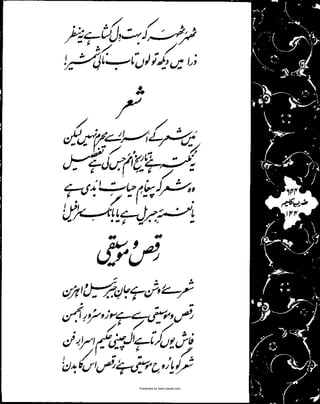 ٹھہر ٹھہر کہ بہت دل کشا ہے یہ منظر
ذرا میں دیکھ تو لوں تابناکیِ شمشیر!
شعر
میں شعر کے اسرار سے محرم نہیں لیکن
یہ نکتہ ہے، تاریخِ امم جس کی ہے تفصیل
وہ شعر کہ پیغامِ حیاتِ ابدی ہے
یا نغمۂ جبریل ہے یا بانگِ سرافیل!
رقص و موسیقی
شعر سے روشن ہے جانِ جبرئیل و اہرمن
رقص و موسیقی سے ہے سوز و سرورِ انجمن
فاش یوں کرتا ہے اک چینی حکیم اسرارِ فن
شعر گویا روحِ موسیقی ہے، رقص اس کا بدن!
ضربِ کلیم
Presented by www.ziaraat.com